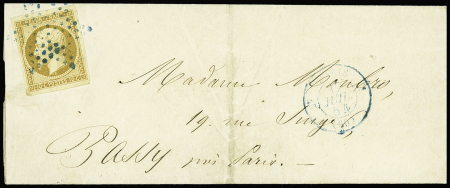 Madame Monbro,
19, rue Singer,
Passy près Paris. —